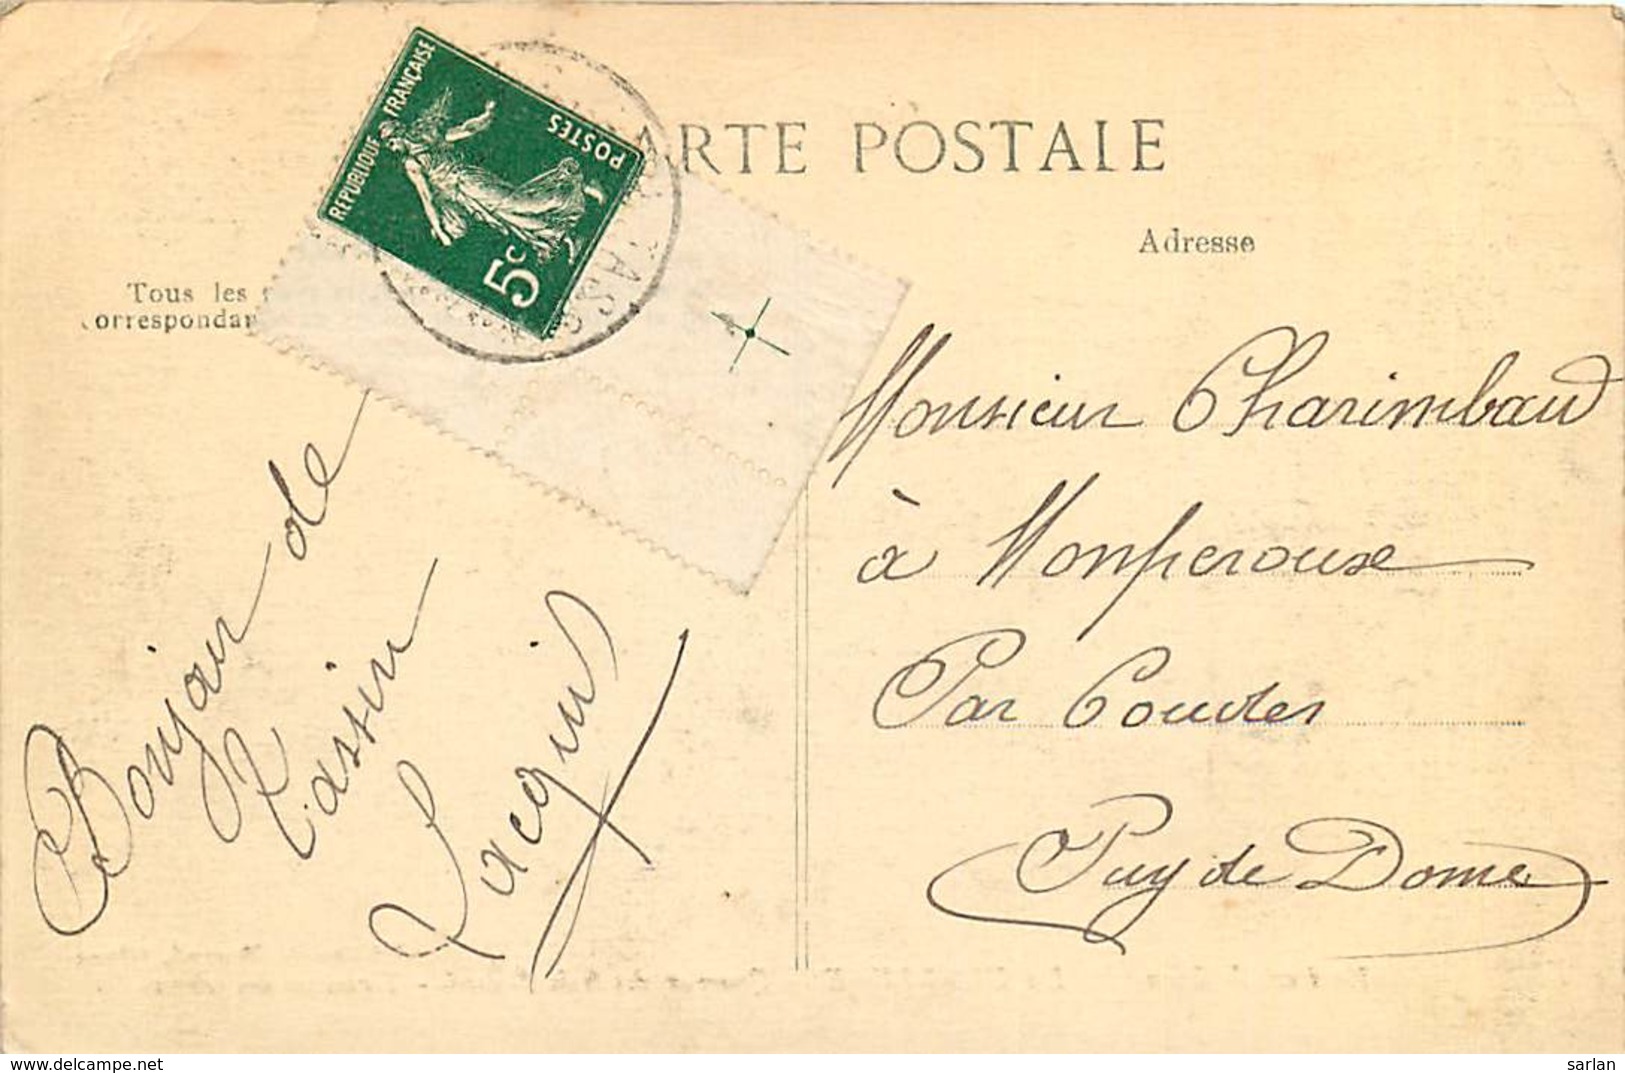 RÉPUBLIQUE FRANÇAISE
POSTES
5c
ARTE POSTALE
Adresse
Tous les
orrespondan
Bonjour de
Tassin
Jacquin
Monsieur Charimbaud
à Monperouse
Par Coudes
Puy de Dome
delcampe.net
sarlan